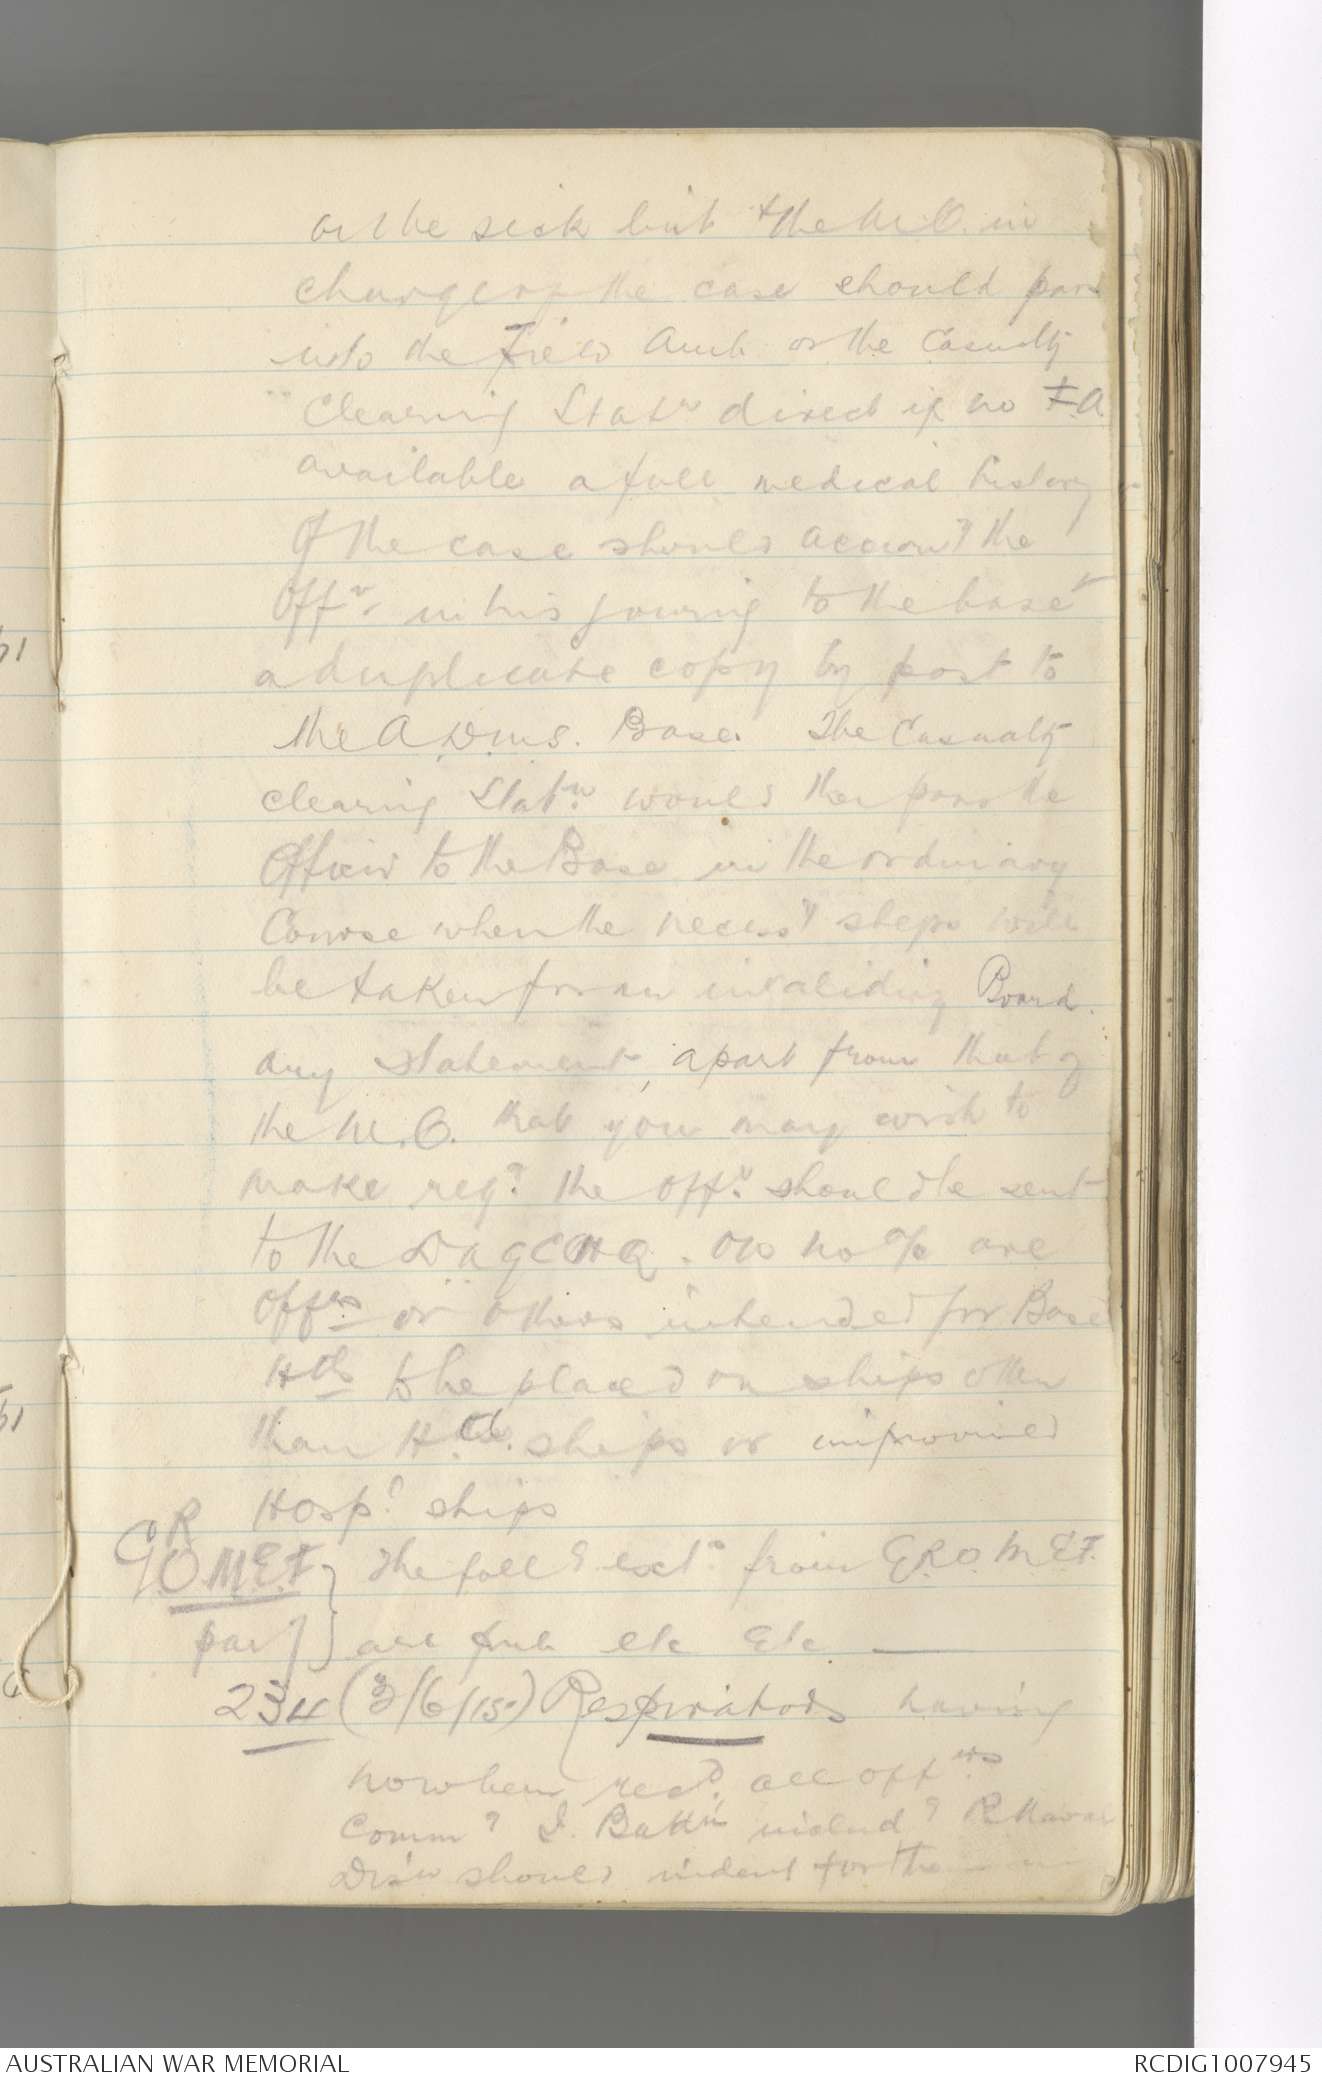 or the sick but the M.O. in
charge of the case should pass
into the Field Amb or the Casualty
Clearing Statn direct if no F.A.
available a full medical history
of the case should accomy the
Offr. in his journey to the base &
a duplicate copy by post to
the A.D.M.S. Base. The Casualty
clearing Statn. would then pass the
Officer to the Base in the ordinary
Course when the necessy steps will
be taken for an invaliding Board.
any statement, apart from that of
the M.O. that you may wish to
make regd. the offr. should be sent
to the D A G G H Q. On no % are
Offrs. or others intended for Base
Hth to be placed on ships other
than H. ships or improvised
Hospl ships
G R
G.O.M.E.F. The follg ext. from G.R.O. M.E.F.
part are pub etc Etc
234 (3/6/15) Respirators having
now been recd. all offrs
Comm g I. Battn includ g
Divn should indent for the
AUSTRALIAN WAR MEMORIAL
RCDIG1007945